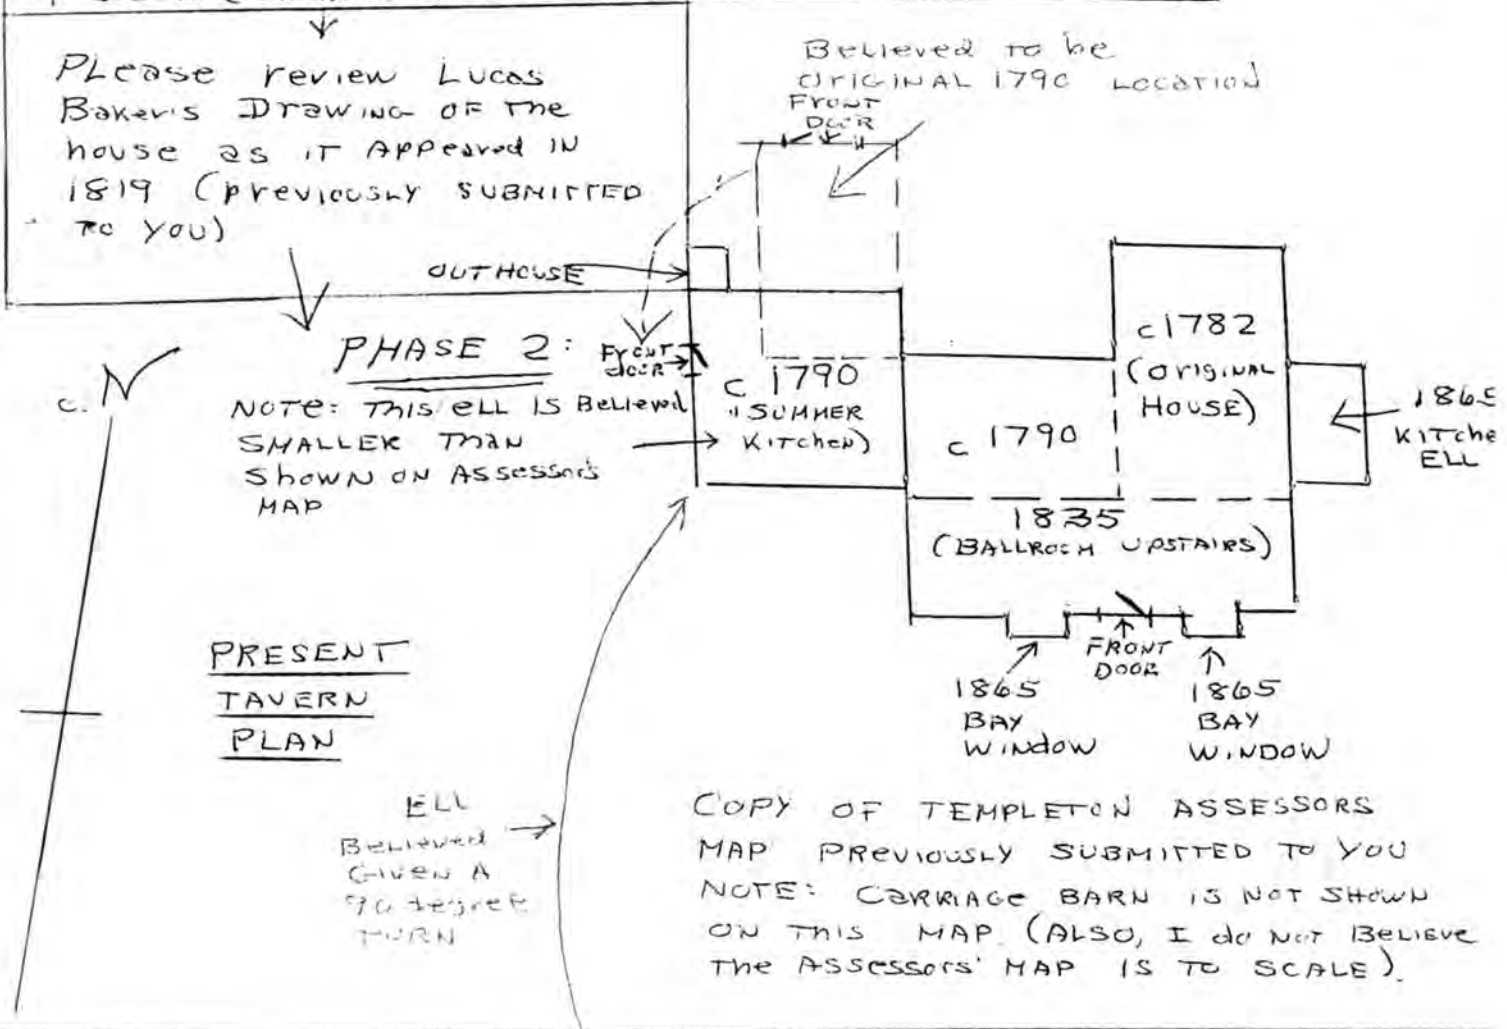 PLease review Lucas
Baker's Drawing OF the
house as IT Appeared IN
1819 (previously SUBMITTED
TO YOU)
Believed TO be
ORIGINAL 1790 Location
FRONT
DOOR
OUTHOUSE
PHASE 2:
NOTE: This ell IS Believed
SMALLER Than
Shown ON Assessors
MAP
FRONT
DOOR
C 1790
"SUMMER
KITchen)
c 1790
c 1782
(Original
House)
1865
KITche
ELL
1835
(BALLROOM UPSTAIRS)
FRONT
DOOR
1865
BAY
WINDOW
1865
BAY
WINDOW
c. N
PRESENT
TAVERN
PLAN
ELL
Believed
Given A
90 degree
TURN
COPY OF TEMPLETON ASSESSORS
MAP PREVIOUSLY SUBMITTED TO YOU
NOTE: CARRIAGE BARN IS NOT SHOWN
ON THIS MAP. (ALSO, I do NOT BELIEVE
The Assessors' MAP IS TO SCALE).